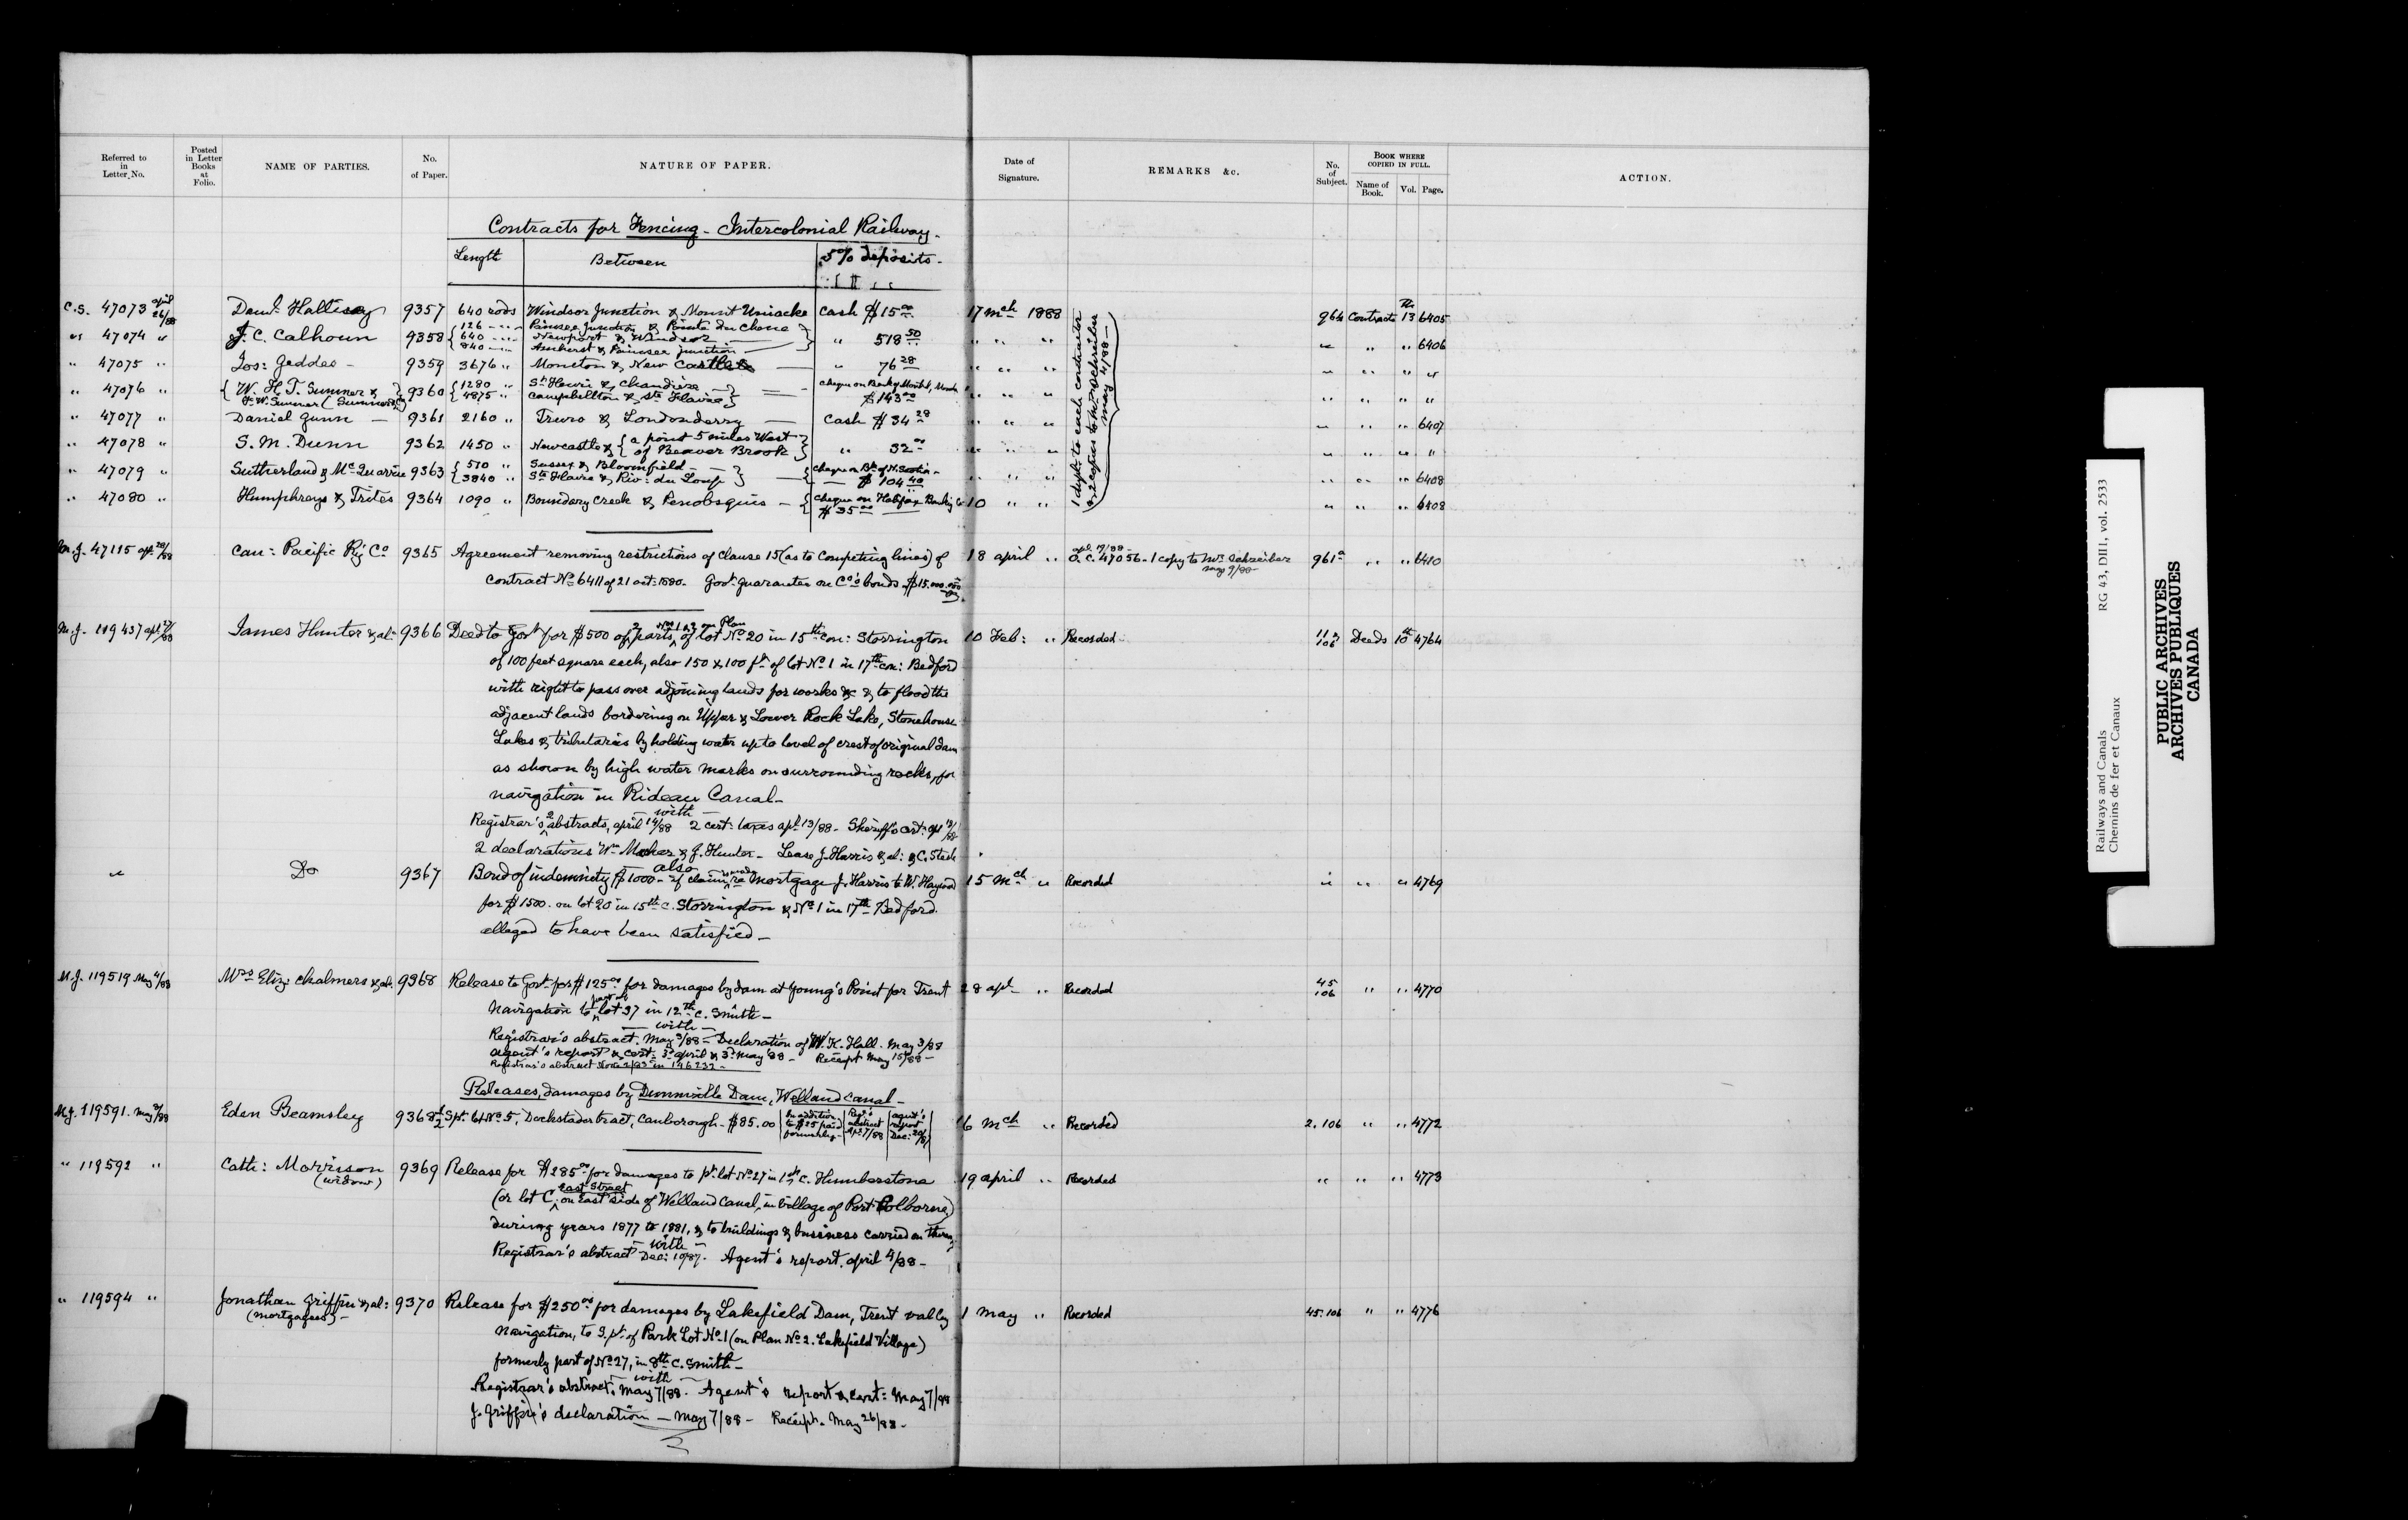 Referred to in Letter No.
Posted in Letter Books at Folio.
NAME OF PARTIES.
No. of Paper.
NATURE OF PAPER.
Date of Signature.
REMARKS &c.
No. of Subject.
BOOK WHERE COPIED IN FULL.
Name of Book. Vol. Page.
ACTION.
Contracts for Fencing - Intercolonial Railway -
Length Between 5% deposits -
C.S. 47073 april 26/88 Danl. 9357 640 rods Windsor Junction & Mount Uniacke Cash $15.00 17 mch 1888 964 Contracts 13th 6405
" 47074 " J. C. Calhoun 9358 { 126 " Painsec Junction & Pointe du Chene
640 " Newport & Windsor
840 " Amherst & Painsec Junction } " 518 50 " " " " " " 6406
" 47075 " Jos: Geddes - 9359 3676 " Moncton & New Castle — " 76 28 " " " " " " "
" 47076 " { W. H. T. Sumner & } 9360 { 1280 " St Henri & Chaudiere
4875 " Campbellton & Ste Flavie } cheque on Bank of Montl,
$143 00 " " " " " " "
" 47077 " Daniel Gunn — 9361 2160 " Truro & Londonderry — Cash $34 28 " " " " " " 6407
" 47078 " S. M. Dunn 9362 1450 " Newcastle & { a point 5 miles West
of Beaver Brook } " 32 00 " " " " " " "
" 47079 " Sutherland & McQuarrie 9363 { 570 " Sussex & Bloomfield —
3840 " Ste Flavie & Riv: du Loup } { cheque on Bk of N. Scotia -
$104 40 " " " " " " 6408
" 47080 " Humphreys & Trites 9364 1090 " Boundary Creek & Penobsquis — { Cheque on Halifax Banking Co
$35 00 10 " " " " " 6408
1 dupl: to each contractor
& 2 copies to Mr Schreiber
may 4/88 -
M.J. 47115 apl 28/88 Can: Pacific Ry Co 9365 Agreement removing restrictions of clause 15 (as to Competing lines) of 18 april " apl 19/88 O.C. 47056 - 1 copy to Mr Schreiber may 9/88 - 961a " " 6410
contract No 6411 of 21 oct: 1880. Govt guarantee on Co's bonds $15.000.000
M.J. 119437 apl 27/88 James Hunter & al: 9366 Deed to Govt for $500 of 2 parts, Nos 1 & 2 on Plan of lot No 20 in 15th con: Storrington 10 Feb: " Recorded - 112 106 Deeds 10th 4764
of 100 feet square each, also 150 x 100 ft of lot No 1 in 17th con: Bedford
with right to pass over adjoining lands for works &c & to flood the
adjacent lands bordering on Upper & Lower Rock Lake, Stonehouse
Lakes & tributaries by holding water up to level of crest of original dam
as shown by high water marks on surrounding rocks, for
navigation in Rideau Canal -
— with —
Registrar's 2 abstracts, april 14/88 2 cert: taxes apl 13/88 - Sheriff's cert: apl 13/88
2 declarations Wm & J. Hunter - Lease J. Harris & al: & C.
also
" Do 9367 Bond of indemnity $1000 - of claim re mortgage J. Harris to W. 15 Mch " Recorded " " " 4769
for $1500. on lot 20 in 15th C. Storrington & No 1 in 17th Bedford.
alleged to have been satisfied -
M.J. 119519 May 4/88 Mrs Eliz: Chalmers & al: 9368 Release to Govt for $125 00 for damages by dam at Young's Point for Trent 28 apl " Recorded 45 106 " " 4770
navigation to part of lot 37 in 12th C. Smith -
— with —
Registrar's abstract. May 3/88 - Declaration of W. K. Hall. May 3/88
agent's report & cert: 3d april & 3d may 88 - Receipt May 15/88 -
Registrar's abstract in 146232 -
Releases, damages by Dunnville Dam, Welland Canal -
M.J. 119591. may 9/88 Eden Beamsley 9368½ S. pt. lot No 5, Dockstader tract, Canborough - $85.00 | In addition to $25 paid formerly - | Regr's abstract Apl 7/88 | agent's report Dec: 20/87 | 16 Mch " Recorded 2. 106 " " 4772
" 119592 " Cath: Morrison 9369 Release for $285 00 for damages to pt. lot No 27 in 1st C. Humberstone 19 april " Recorded " " " 4773
(widow)
(or lot C, East Street on East side of Welland Canal, in village of Port Colborne)
during years 1877 to 1881, & to buildings & business carried on thereon
— with —
Registrar's abstract Dec: 10/87. Agent's report. april 4/88 -
" 119594 " Jonathan Griffin & al: 9370 Release for $250 00 for damages by Lakefield Dam, Trent valley 1 May " Recorded 45. 106 " " 4776
(mortgagees) -
navigation, to S. pt. of Park Lot No 1 (on Plan No 2. Lakefield Village)
formerly part of No 27, in 8th C. Smith -
— with —
Registrar's abstract. May 7/88. Agent's report & cert: May 7/88
J. Griffin's declaration — May 7/88 - Receipt. May 26/88 -
Railways and Canals
Chemins de fer et Canaux
RG 43, DIII, vol. 2533
PUBLIC ARCHIVES
ARCHIVES PUBLIQUES
CANADA